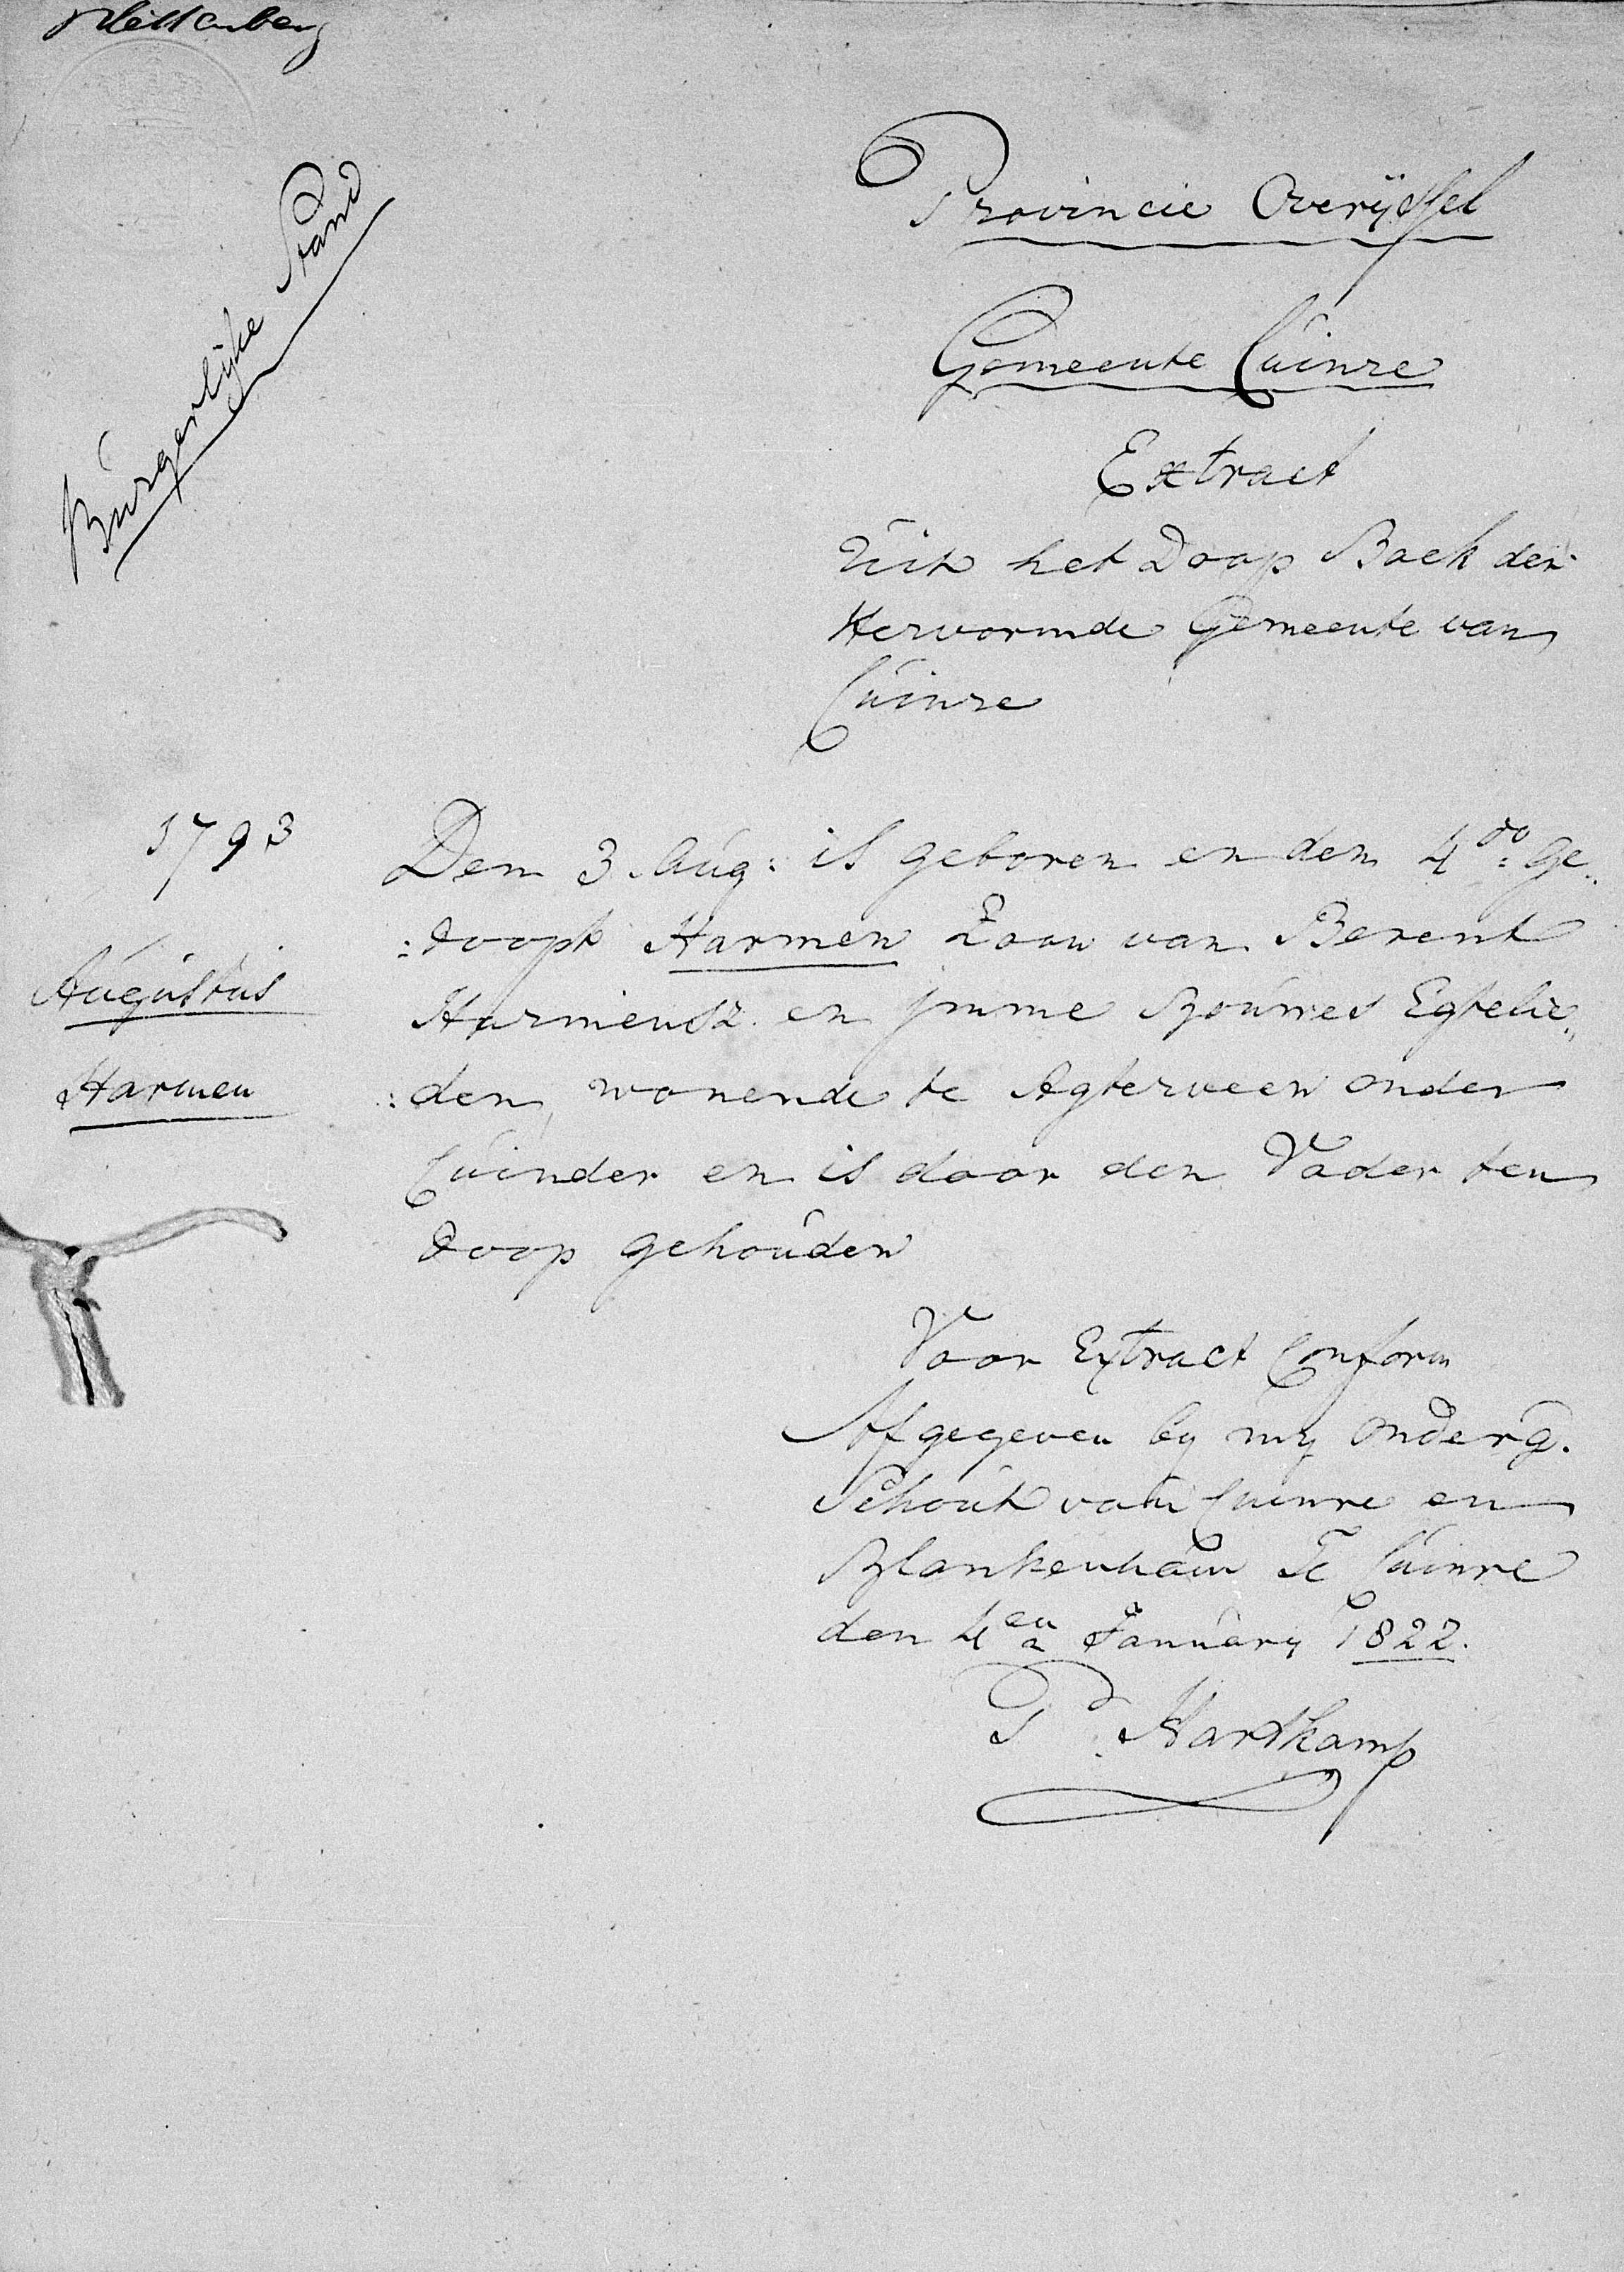 Plettenberg
Burgerlijke Stand
Provincie Overÿssel
Gemeente Cuinre
Extract
Uit het Doop Boek der
Hervormde Gemeente van
Cuinre
1793
Augustus
Harmen
Den 3. Aug: is geboren en den 4do: Ge„
:doopt Harmen Zoon van Berent
Harmensz. en Jmme Bouwes Egtelie„
:den, wonende te Agterveen onder
Cuinder en is door den Vader ten
doop gehouden
Voor Extract Conform
Afgegeven by my onderg.
Schout van Cuinre en
Blankenham Te Cuinre
den 4en January 1822.
P. Hartkamp